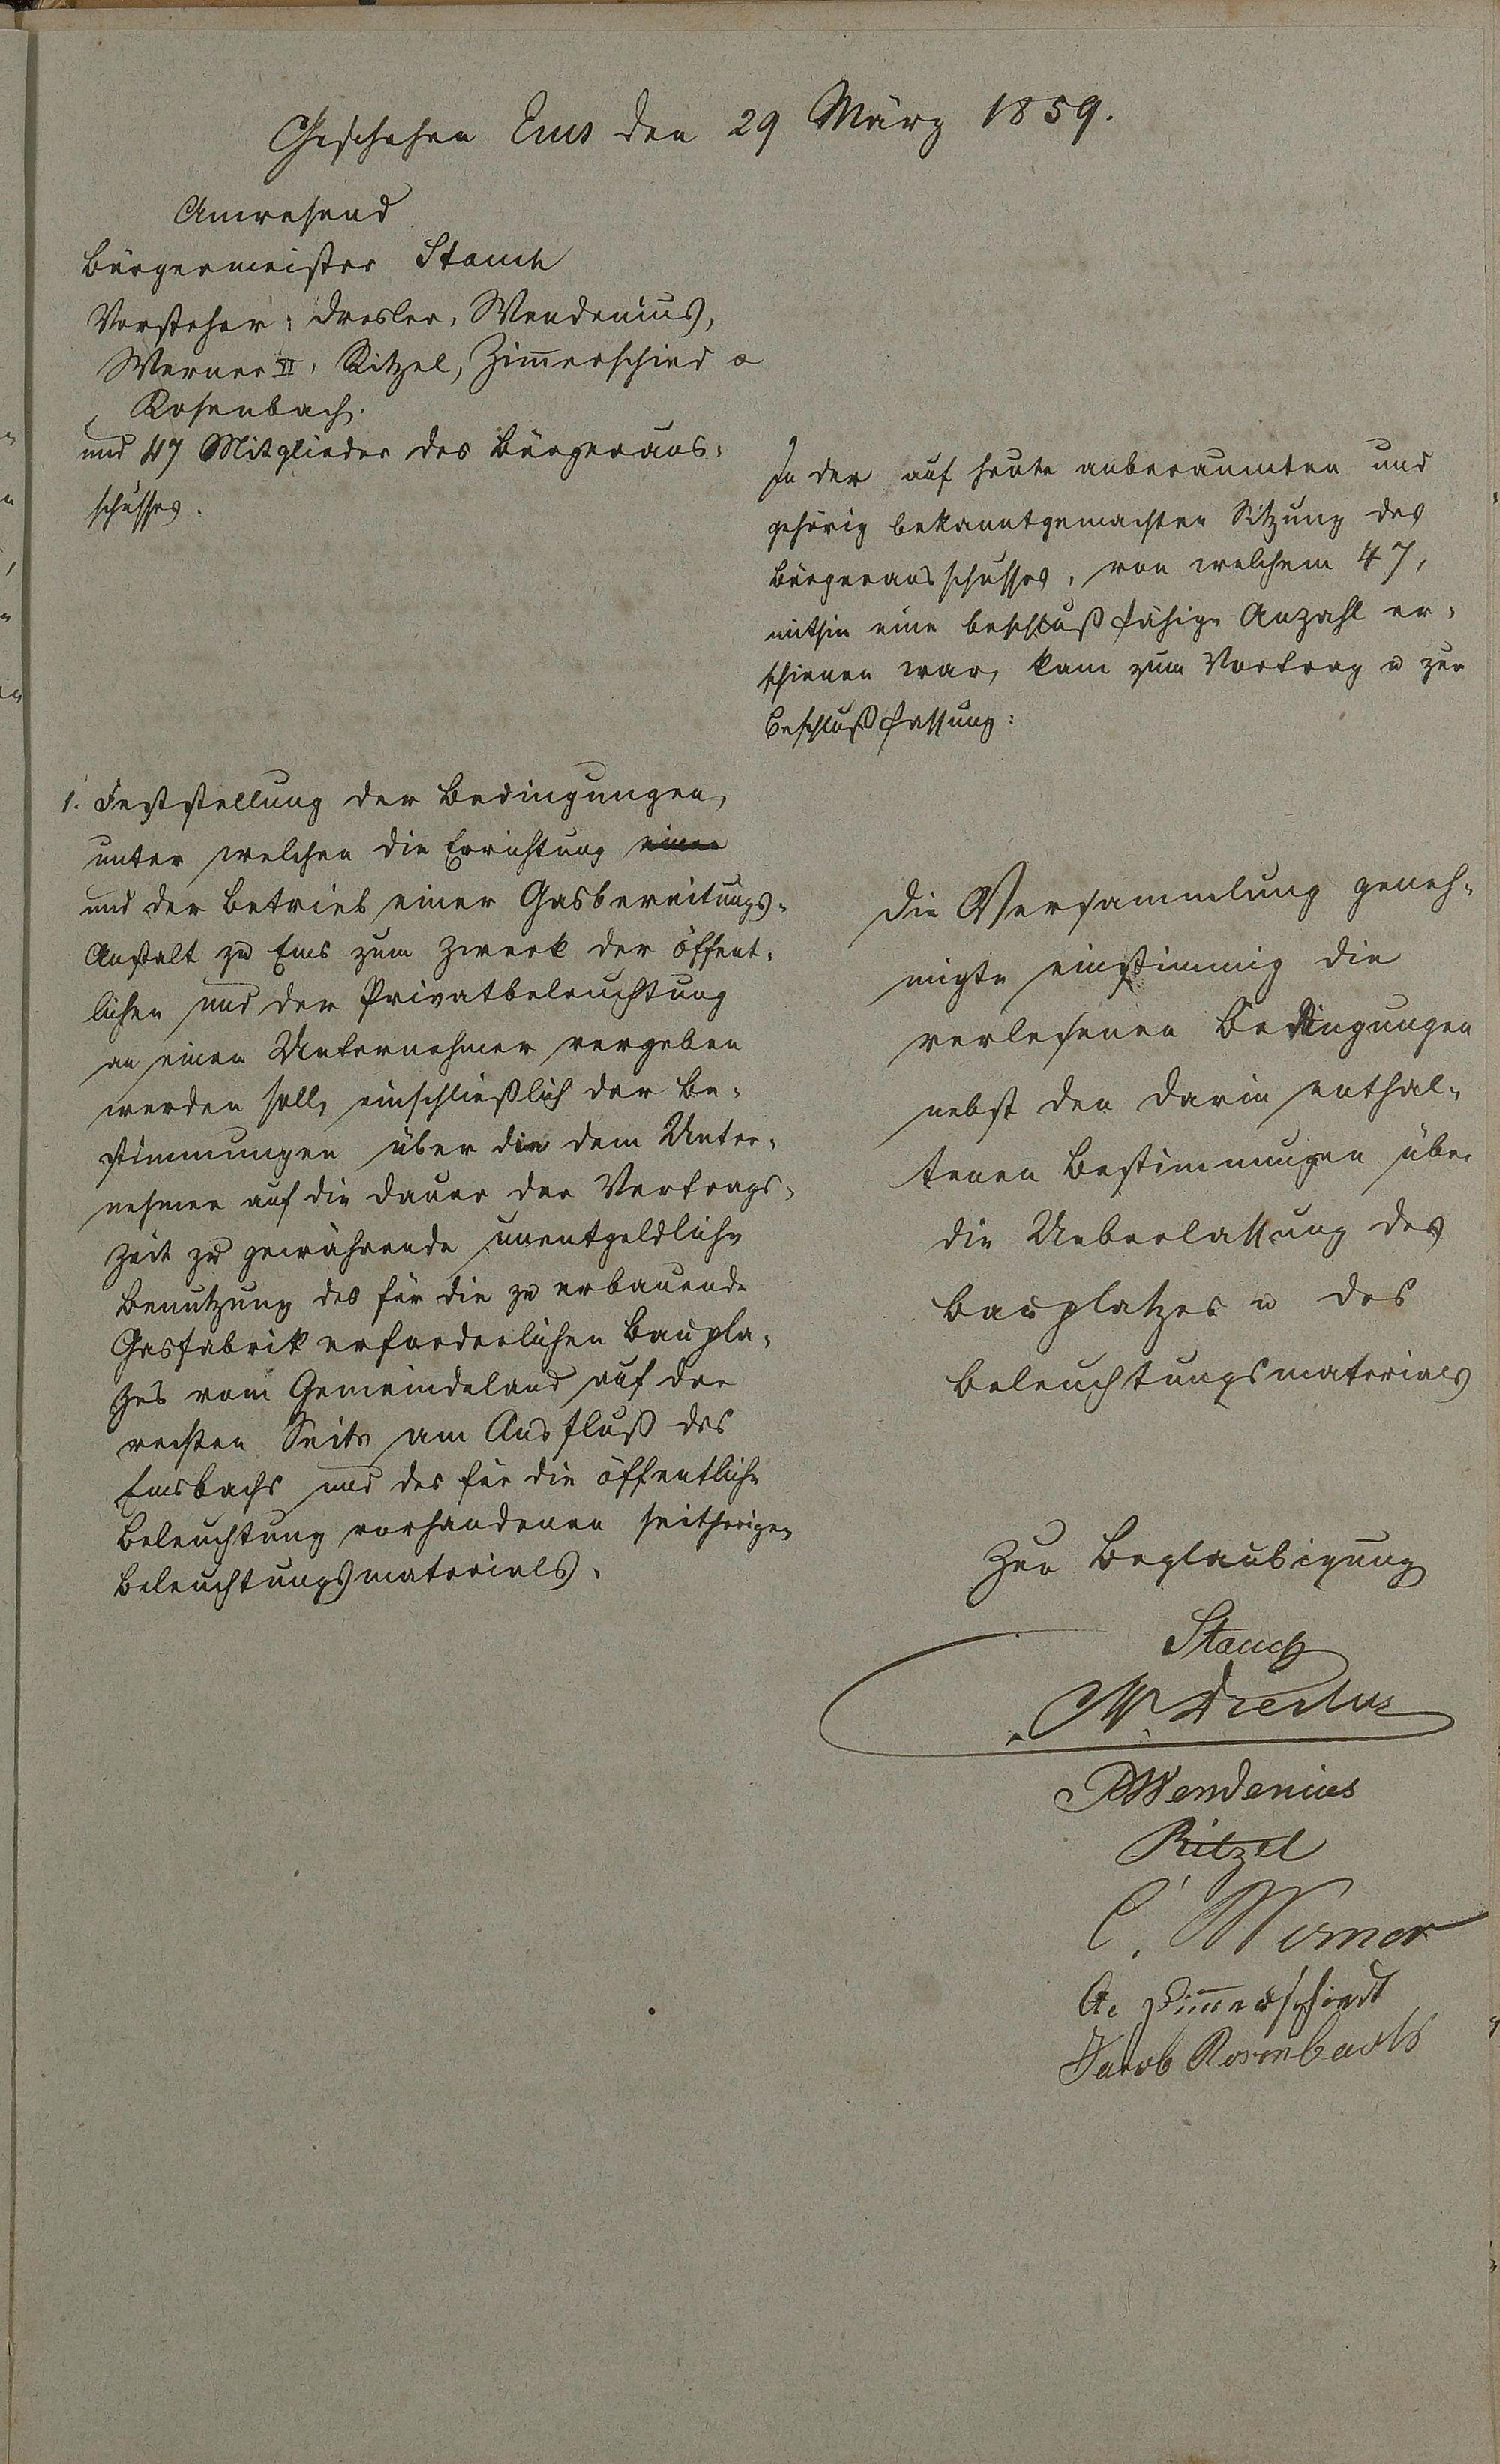 Geschehen Ems den 29 März 1859.
Anwesend
Bürgermeister Stauch
Vorsteher: Dresler, Wendenius,
Werner VI, Ritzel, Zim̄erschied u
Rosenbach.
und 47 Mitglieder des Bürgeraus-
schusses.
In der auf heute anberaumten und
gehörig bekanntgemachten Sitzung des
Bürgerausschusses, von welchem 47,
mithin eine beschlußfähige Anzahl er-
schienen war, kam zum Vortrag u zur
Beschlußfassung:
1. Feststellung der Bedingungen,
unter welchen die Errichtung einer
und der Betrieb einer Gasbereitungs-
Anstalt zu Ems zum Zweck der öffent-
lichen und der Privatbeleuchtung
an einen Unternehmer vergeben
werden soll, einschließlich der Be-
stimmungen über die dem Unter-
nehmer auf die Dauer der Vertrags-
zeit zu gewährende unentgeldliche
Benutzung des für die zu erbauende
Gasfabrik erforderlichen Baupla-
tzes vom Gemeindeland auf der
rechten Seite am Ausfluß des
Emsbachs und des für die öffentliche
Beleuchtung vorhandenen seitherigen
Beleuchtungsmaterials.
Die Versammlung geneh-
migte einstimmig die
verlesenen Bedingungen
nebst den darin enthal-
tenen Bestimmungen über
die Ueberlassung des
Bauplatzes u des
Beleuchtungsmaterials
Zur Beglaubigung
Stauch
W. Dresler
Wendenius
Ritzel
C. Werner
A. Zim̄erschiedt
Jacob Rosenbach